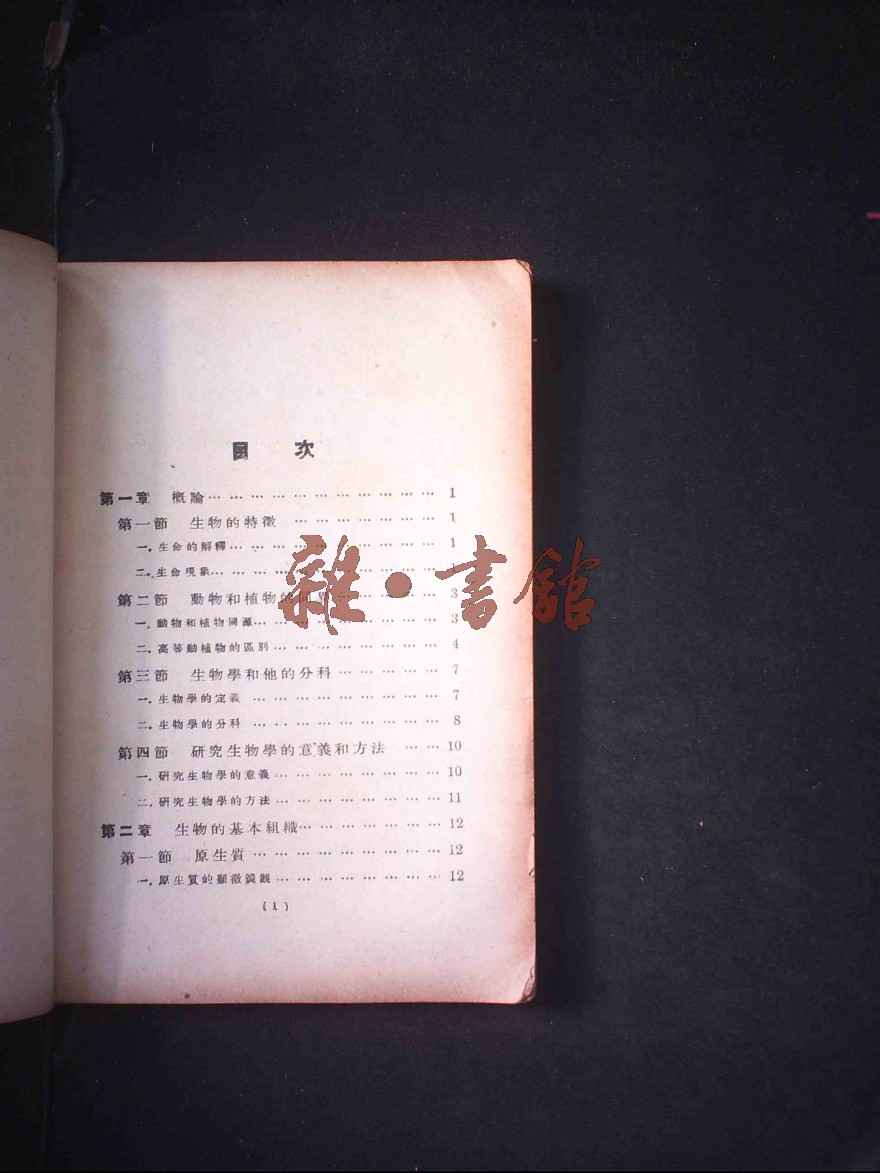 目 次
第一章 概論 … … … … … … … … … … … 1
第一節 生物的特徵 … … … … … … … 1
一．生命的解釋 … … … … … … … … … … 1
二．生命現象 … … … … … … … … … … 1
第二節 動物和植物的同異 … … … … … 3
一．動物和植物同源 … … … … … … … … … 3
二．高等動植物的區別 … … … … … … … … 4
第三節 生物學和他的分科 … … … … … 7
一．生物學的定義 … … … … … … … … … 7
二．生物學的分科 … … … … … … … … … 8
第四節 研究生物學的意義和方法 … … 10
一．研究生物學的意義 … … … … … … … … 10
二．研究生物學的方法 … … … … … … … … 11
第二章 生物的基本組織 … … … … … … … 12
第一節 原生質 … … … … … … … … … 12
一．原生質的顯微鏡觀 … … … … … … … … 12
(1)
雜·書館